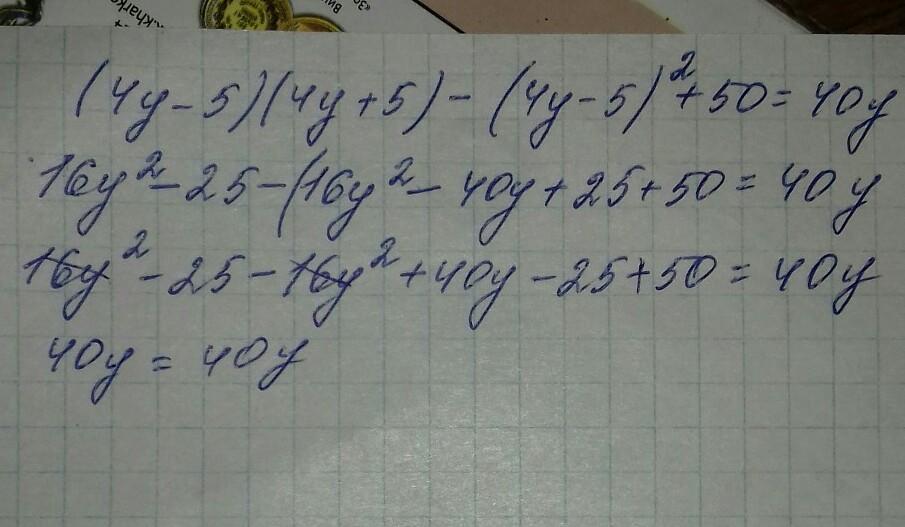 .kharko
(4y-5)(4y+5)-(4y-5)²+50=40y
16y²-25-(16y²-40y+25+50=40y
16y²-25-16y²+40y-25+50=40y
40y=40y